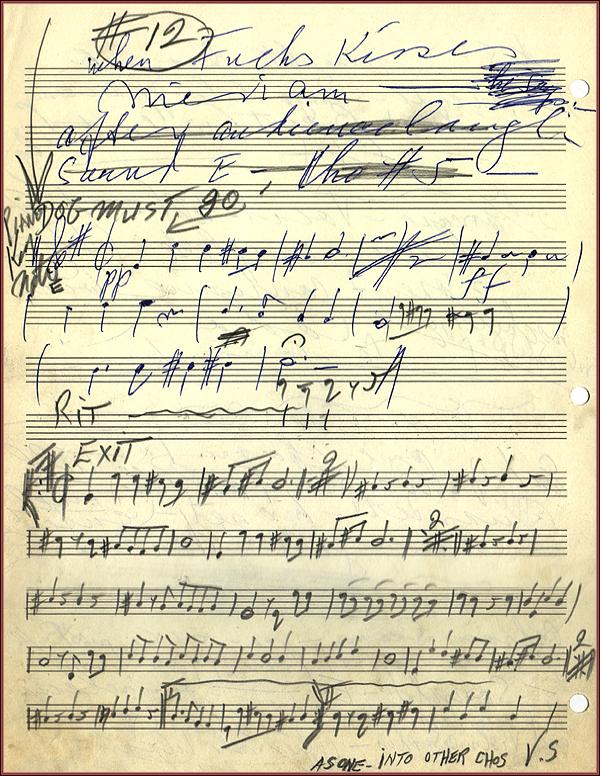 #12
when Fuchs Kisses
Miriam
after audience laugh
Sound E - tho #5
DOG MUST go
PIANO
NOTE
E
pp
2
ff
RIT
EXIT
2
2
2
AS ONE - INTO OTHER CHOS V.S